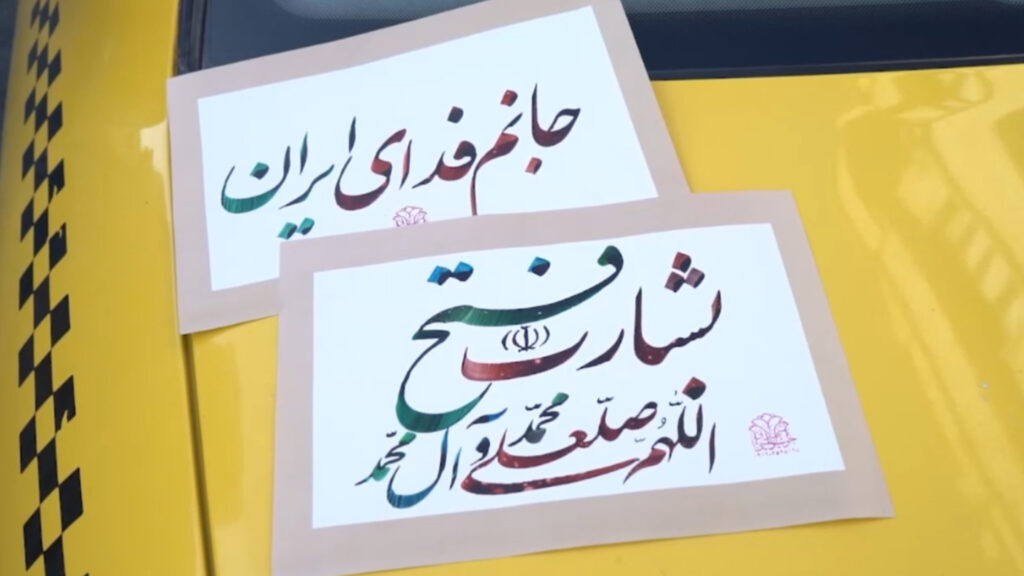 جانم فدای ایران
بشارت فتح
اللّهُمَّ صلّ علی محمّد و آل محمّد